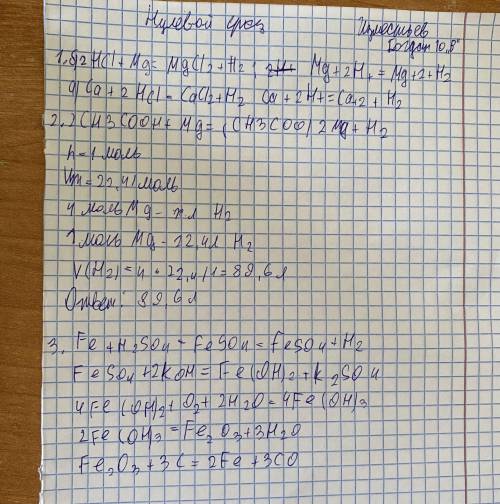 Нулевой срез
Изместьев
Богдан 10 "Б"
1. б) 2HCl + Mg = MgCl2 + H2; Mg + 2H+ = Mg+2 + H2
д) Ca + 2HCl = CaCl2 + H2 Ca + 2H+ = Ca+2 + H2
2. 2CH3COOH + Mg = (CH3COO)2Mg + H2
n = 1 моль
Vm = 22,4 л/моль
4 моль Mg - x л H2
1 моль Mg - 22,4 л H2
V(H2) = 4 • 22,4 / 1 = 89,6 л
Ответ: 89,6 л
3. Fe + H2SO4 = FeSO4 = FeSO4 + H2
FeSO4 + 2KOH = Fe(OH)2 + K2SO4
4Fe(OH)2 + O2 + 2H2O = 4Fe(OH)3
2Fe(OH)3 = Fe2O3 + 3H2O
Fe2O3 + 3C = 2Fe + 3CO